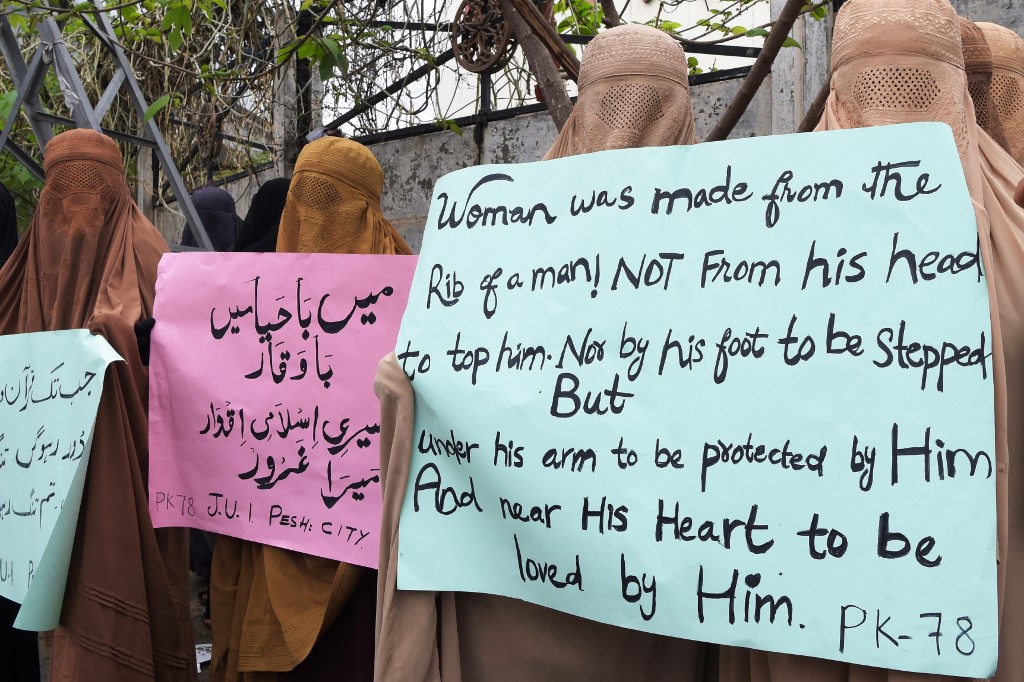 جب تک قرآن
دور رہوگی
تک
میں بَا حَیا میں
بَا وَقَار
میری اِسْلَامی اِقْدَار
مَیرَا غَرُور
PK78 J.U.I. PESH: CITY.
Woman was made from the
Rib of a man! NOT From his head
to top him. Nor by his foot to be Stepped
But
under his arm to be protected by Him
And near His Heart to be
loved by Him.
PK-78